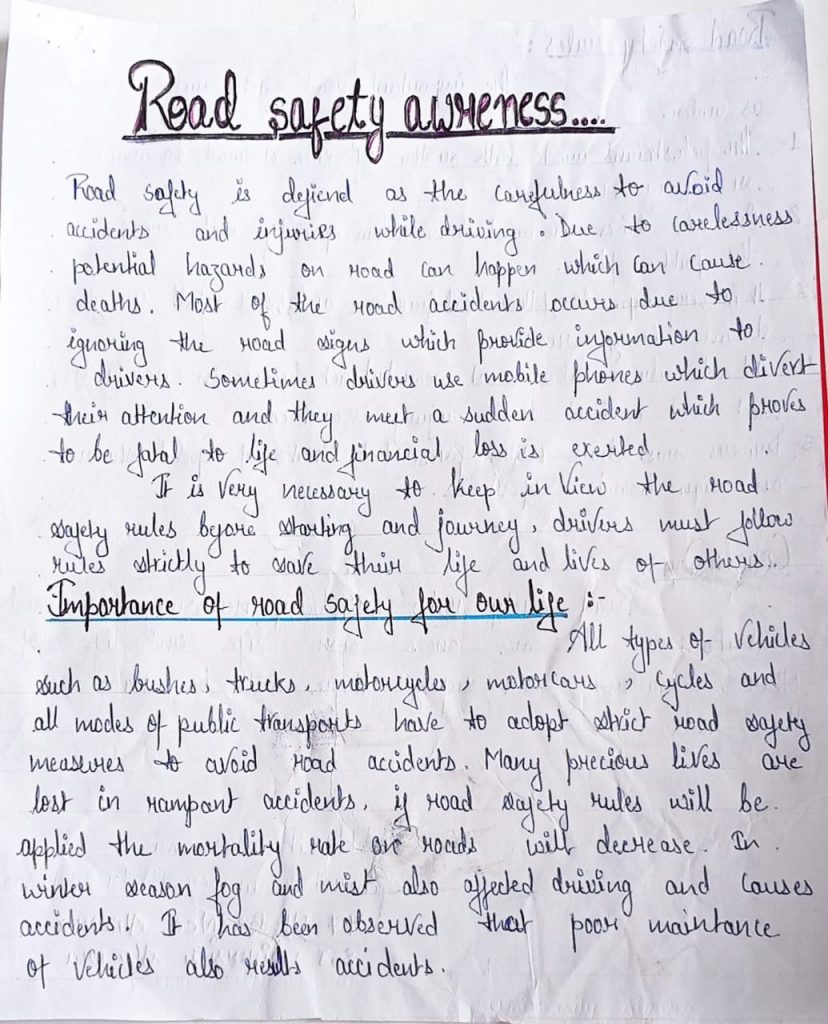 Road safety awreness....
Road safety is defiend as the carefulness to avoid
accidents and injuries while driving. Due to carelessness
potential hazards on road can happen which can cause.
deaths. Most of the road accidents occurs due to
ignoring the road signs which provide information to
drivers. Sometimes drivers use mobile phones which divert
their attention and they meet a sudden accident which proves
to be fatal to life and financial loss is exerted.
It is very necessary to keep in view the road
safety rules before starting and journey, drivers must follow
rules strictly to save their life and lives of others..
Importance of road safety for our life :-
All types of vehicles
such as bushes, trucks, motorcycles, motorcars, cycles and
all modes of public transports have to adopt strict road safety
measures to avoid road accidents. Many precious lives are
lost in rampant accidents, if road safety rules will be.
applied the mortality rate on roads will decrease. In
winter season fog and mist also affected driving and causes
accidents. It has been observed that poor maintance
of vehicles also results accidents.